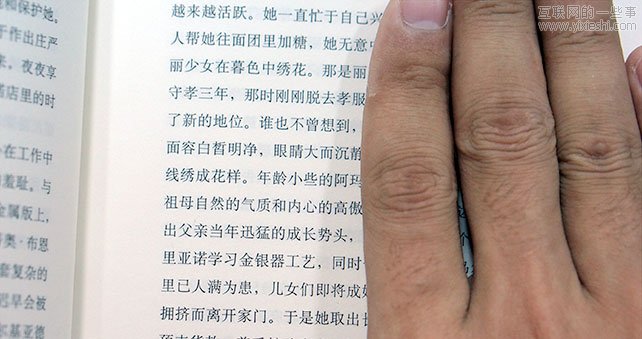 和保护她。
于作出庄严
来，夜夜享
店里的时
在工作中
的羞耻。与
金属版上，
奥·布恩
套复杂的
迟早会被
尔基亚德
越来越活跃。她一直忙于自己兴
人帮她往面团里加糖，她无意中
丽少女在暮色中绣花。那是丽
守孝三年，那时刚刚脱去孝服
了新的地位。谁也不曾想到，
面容白皙明净，眼睛大而沉静
线绣成花样。年龄小些的阿玛
祖母自然的气质和内心的高傲
出父亲当年迅猛的成长势头，
里亚诺学习金银器工艺，同时
里已人满为患，儿女们即将成
拥挤而离开家门。于是她取出
互联网的一些事
www.yixieshi.com